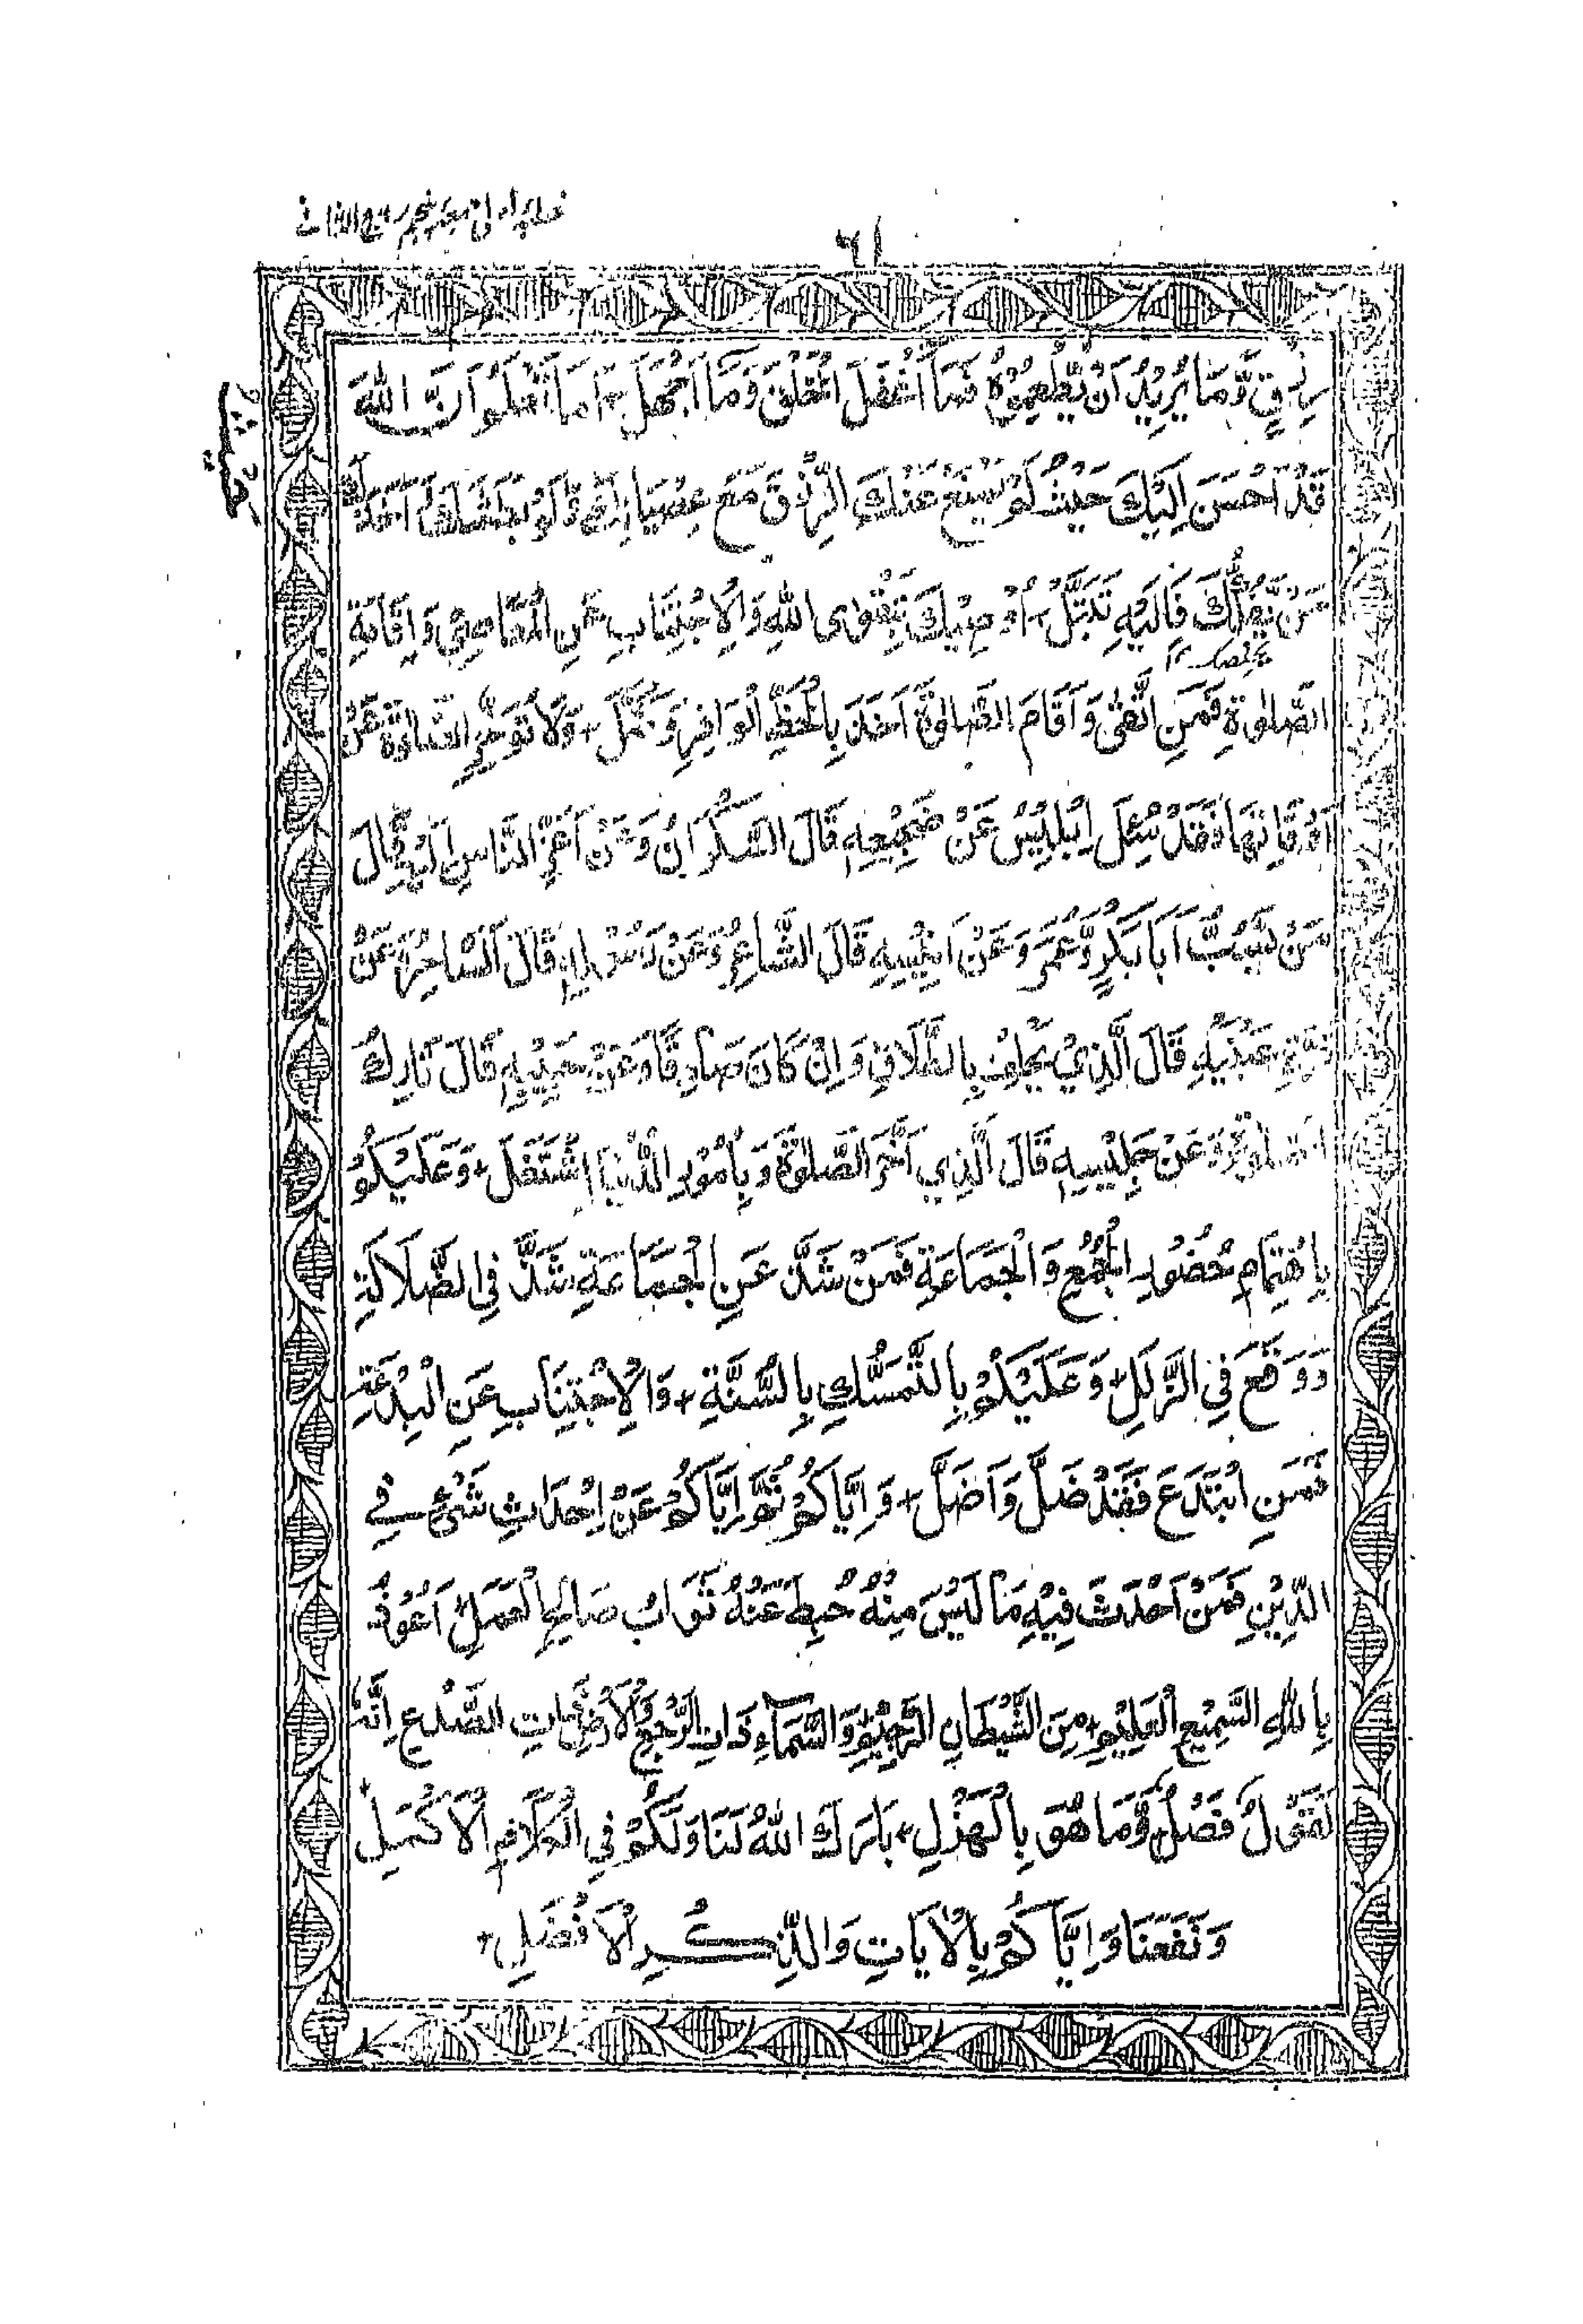 خطبہ اولی جمعہ پنجم ربیع الثانی
٦١
رِزْقٍ وَّمَا يُرِيْدُ اَنْ يُّطْعِمُوْهُ فَمَا اَغْفَلَ الْخَلْقَ وَمَا اَجْهَلَ + اَمَا تَعْلَمُ اَنَّ اللهَ
قَدْ اَحْسَنَ اِلَيْكَ حَيْثُ لَمْ يَمْنَعْ عَنْكَ الرِّزْقَ مَعَ عِصْيَانِكَ
فَاِلَيْهِ تَبَتَّلْ + اُوْصِيْكَ بِتَقْوَى اللهِ وَالْاِجْتِنَابِ عَنِ الْمَعَاصِيْ وَاِقَامَةِ
الصَّلٰوةِ فَمَنِ اتَّقٰى وَاَقَامَ الصَّلٰوةَ اَخَذَ بِالْحَظِّ الْوَافِرِ وَتَكَمَّلَ + وَلَا تُؤَخِّرِ الصَّلٰوةَ عَنْ
اَوْقَاتِهَا فَقَدْ سُئِلَ اِبْلِيْسُ عَنْ ضَجِيْعِهٖ قَالَ السَّكْرَانُ وَعَنْ اَعَزِّ النَّاسِ اِلَيْهِ قَالَ
مَنْ يَّسُبُّ اَبَا بَكْرٍ وَّعُمَرَ وَعَنْ اَنِيْسِهٖ قَالَ الشَّاعِرُ وَعَنْ رَسُوْلِهٖ قَالَ السَّاحِرُ وَعَنْ
قُرَّةِ عَيْنَيْهِ قَالَ الَّذِيْ يَحْلِفُ بِالطَّلَاقِ وَاِنْ كَانَ صَادِقًا وَعَنْ حَبِيْبِهٖ قَالَ تَارِكُ
الصَّلٰوةِ وَعَنْ جَلِيْسِهٖ قَالَ الَّذِيْ اَخَّرَ الصَّلٰوةَ وَبِاُمُوْرِ الدُّنْيَا اشْتَغَلَ + وَعَلَيْكُمْ
بِاِهْتِمَامِ حُضُوْرِ الْجُمَعِ وَالْجَمَاعَةِ فَمَنْ شَذَّ عَنِ الْجَمَاعَةِ شَذَّ فِي الضَّلَالَةِ
وَوَقَعَ فِي الزَّلَلِ + وَعَلَيْكُمْ بِالتَّمَسُّكِ بِالسُّنَّةِ + وَالْاِجْتِنَابِ عَنِ الْبِدْعَةِ
فَمَنِ ابْتَدَعَ فَقَدْ ضَلَّ وَاَضَلَّ + وَاِيَّاكُمْ ثُمَّ اِيَّاكُمْ عَنْ اِحْدَاثِ شَيْءٍ فِي
الدِّيْنِ فَمَنْ اَحْدَثَ فِيْهِ مَا لَيْسَ مِنْهُ حُبِطَ عَنْهُ ثَوَابُ صَالِحِ الْعَمَلِ + اَعُوْذُ
بِاللهِ السَّمِيْعِ الْعَلِيْمِ + مِنَ الشَّيْطَانِ الرَّجِيْمِ وَالسَّمَآءِ ذَاتِ الرَّجْعِ وَالْاَرْضِ ذَاتِ الصَّدْعِ اِنَّهٗ
لَقَوْلٌ فَصْلٌ وَّمَا هُوَ بِالْهَزْلِ + بَارَكَ اللهُ لَنَا وَلَكُمْ فِي الْكَلَامِ الْاَكْمَلِ +
وَنَفَعَنَا وَاِيَّاكُمْ بِالْاٰيَاتِ وَالذِّكْرِ الْاَفْضَلِ +